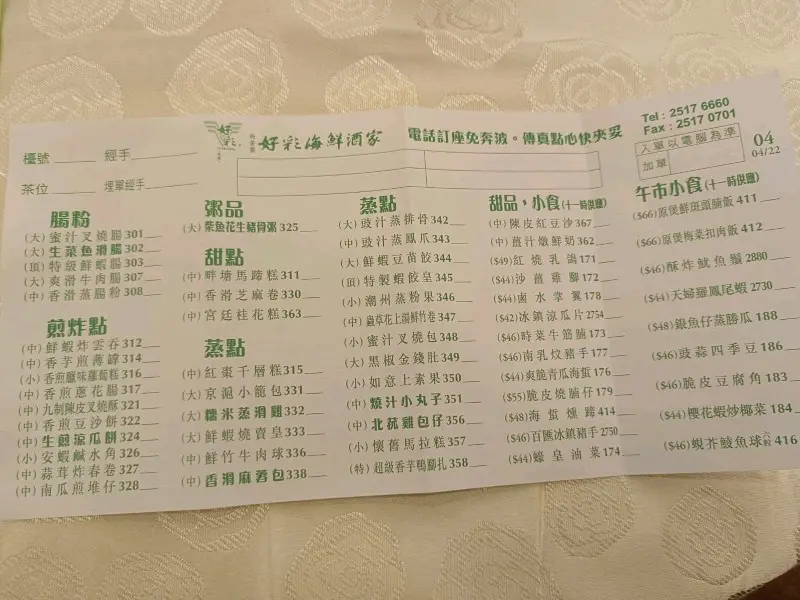 好彩海鮮酒家
電話訂座免奔波。傳真點心快夾妥
Tel : 2517 6660
Fax : 2517 0701
入單以電腦為準
加單
04
04/22
檯號 經手
茶位 埋單經手
腸粉
(大) 蜜汁叉燒腸301
(大) 生菜魚滑腸302
(頂) 特級鮮蝦腸303
(大) 爽滑牛肉腸307
(中) 香滑蒸腸粉308
煎炸點
(中) 鮮蝦炸雲吞312
(中) 香芋煎薄罉314
(小) 香煎臘味蘿蔔糕316
(中) 香煎蔥花腸317
(中) 九制陳皮叉燒酥321
(中) 香煎豆沙餅322
(中) 生煎涼瓜餅324
(小) 安蝦鹹水角326
(中) 蒜茸炸春卷327
(中) 南瓜煎堆仔328
粥品
(大) 柴魚花生豬骨粥325
甜點
(中) 畔塘馬蹄糕311
(中) 香滑芝麻卷330
(中) 宮廷桂花糕363
蒸點
(中) 紅棗千層糕315
(大) 京滬小籠包331
(大) 糯米蒸滑雞332
(大) 鮮蝦燒賣皇333
(中) 鮮竹牛肉球336
(中) 香滑麻蓉包338
蒸點
(大) 豉汁蒸排骨342
(中) 豉汁蒸鳳爪343
(大) 鮮蝦豆苗餃344
(頂) 特製蝦餃皇345
(小) 潮州蒸粉果346
(中) 蟲草花上湯鮮竹卷347
(小) 蜜汁叉燒包348
(大) 黑椒金錢肚349
(小) 如意上素果350
(中) 燒汁小丸子351
(中) 北菰雞包仔356
(小) 懷舊馬拉糕357
(特) 超級香芋鴨腳扎358
甜品，小食(十一時供應)
(中) 陳皮紅豆沙367
(中) 薑汁燉鮮奶362
($49) 紅燒乳鴿171
($44) 沙薑雞腳172
($44) 鹵水掌翼178
($42) 冰鎮涼瓜片2754
($46) 時菜牛筋腩173
($46) 南乳炆豬手177
($44) 爽脆青瓜海蜇176
($55) 脆皮燒腩仔179
($48) 海蜇燻蹄414
($46) 百匯冰鎮豬手2750
($44) 蠔皇油菜174
午市小食(十一時供應)
($66) 原煲鮮斑頭腩飯411
($66) 原煲梅菜扣肉飯412
($46) 酥炸魷魚鬚2880
($44) 天婦羅鳳尾蝦2730
($48) 銀魚仔蒸勝瓜188
($46) 豉蒜四季豆186
($46) 脆皮豆腐角183
($44) 櫻花蝦炒椰菜184
($46) 蜆芥鯪魚球416